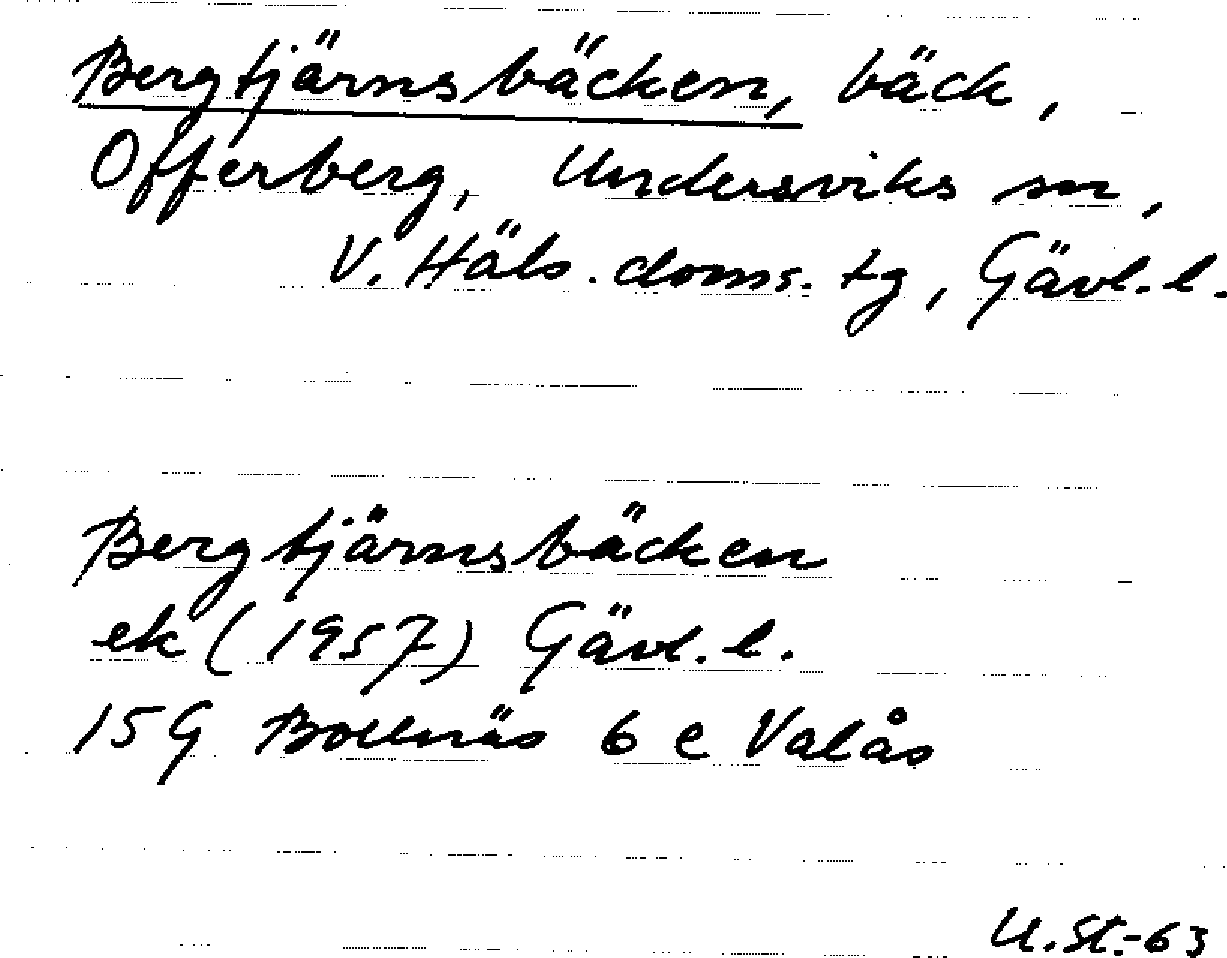 Bergtjärnsbäcken, bäck,
Offerberg, Undersviks sn,
V. Häls. doms. tg, Gävl. l.
Bergtjärnsbäcken
ek (1957) Gävl. l.
15G Bollnäs 6 c Valås
U.St.-63